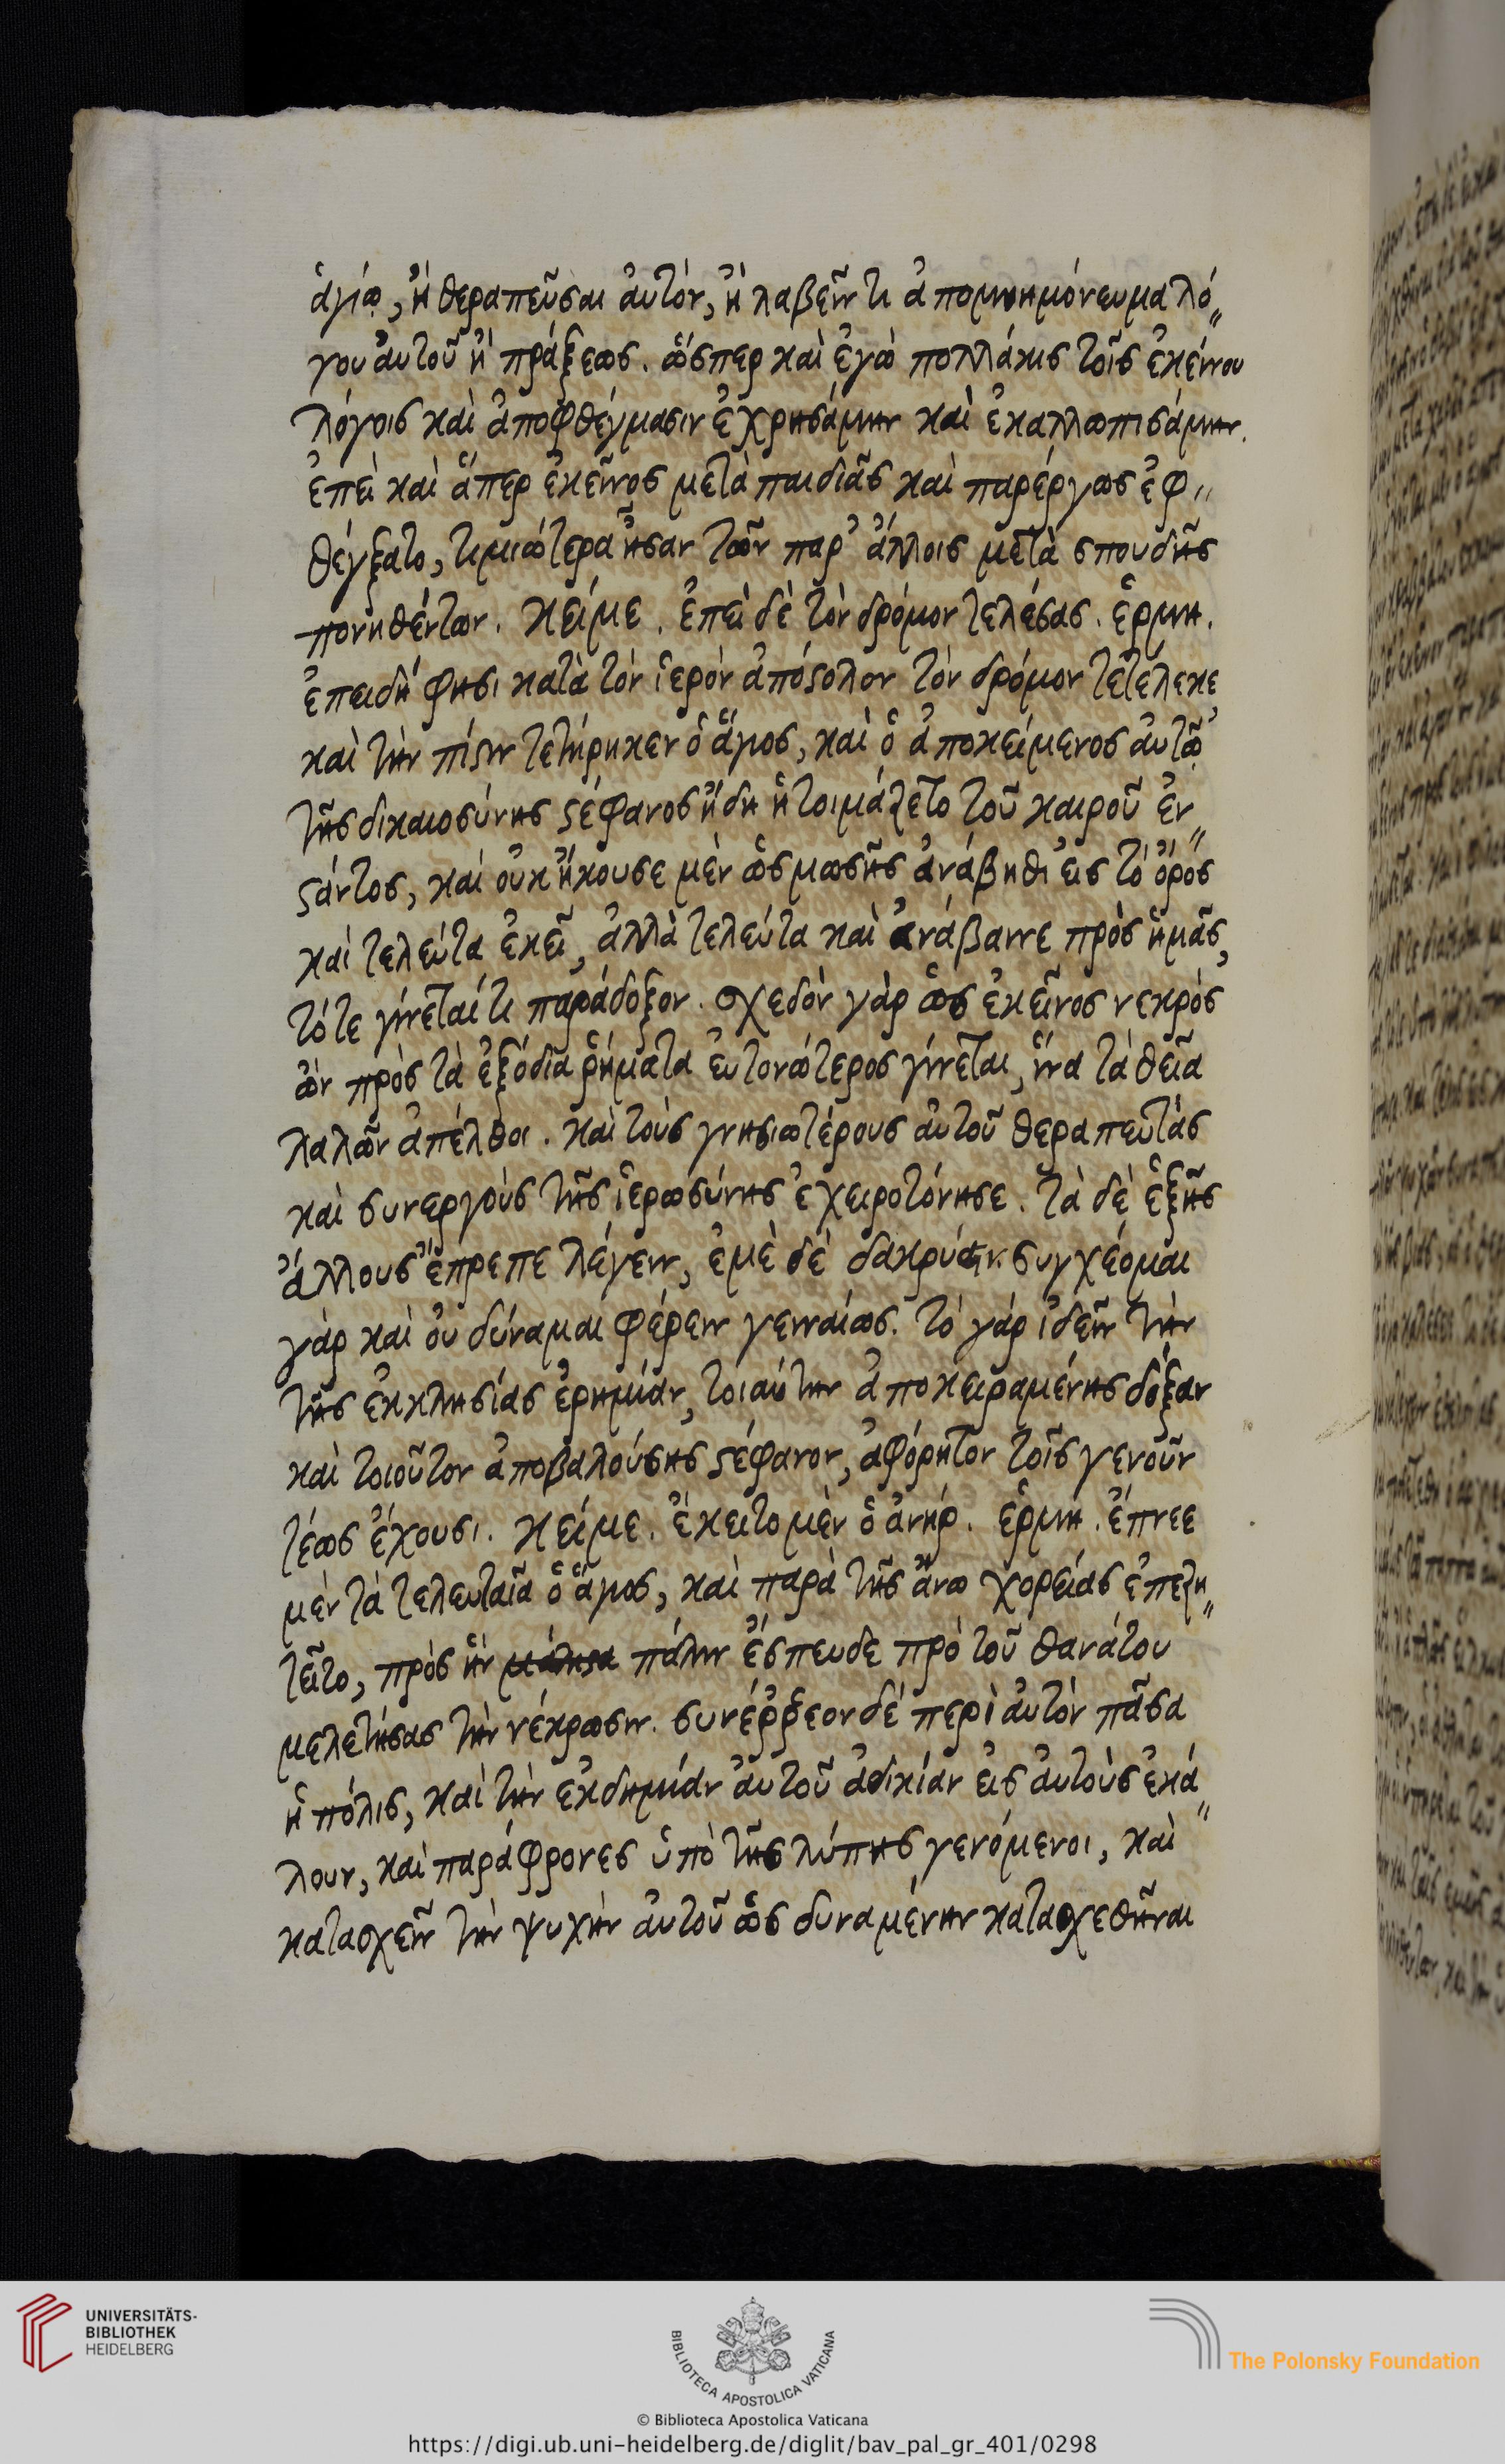 ἁγίῳ, ἢ θεραπεῦσαι ἀυτὸν, ἢ λαβεῖν τι ἀπομνημόνευμα λό
γου ἀυτοῦ ἢ πράξεως. ὥσπερ καὶ ἐγὼ πολλάκις τοῖς ἐκείνου
λόγοις καὶ ἀποφθέγμασιν ἐχρησάμην καὶ ἐκαλλωπισάμην.
ἐπεὶ καὶ ἅπερ ἐκεῖνος μετὰ παιδιᾶς καὶ παρέργως ἐφ
θέγξατο, τιμιώτερα ἦσαν τῶν παρ' ἄλλοις μετὰ σπουδῆς
πονηθέντων. κείμε. ἐπεὶ δὲ τὸν δρόμον τελέσας. ἑρμη.
ἐπειδή φησι κατὰ τὸν ἱερὸν ἀπόστολον τὸν δρόμον τετέλεκε
καὶ τὴν πίστιν τετήρηκεν ὁ ἅγιος, καὶ ὁ ἀποκείμενος ἀυτῷ
τῆς δικαιοσύνης στέφανος ἤδη ἡτοιμάζετο τοῦ καιροῦ ἐν
στάντος, καὶ οὐκ ἤκουσε μὲν ὡς μωσῆς ἀνάβηθι εἰς τὸ ὄρος
καὶ τελεύτα ἐκεῖ, ἀλλὰ τελεύτα καὶ ἀνάβαινε πρὸς ἡμᾶς,
τότε γίνεταί τι παράδοξον. σχεδὸν γὰρ ὡς ἐκεῖνος νεκρὸς
ὢν πρὸς τὰ ἐξόδια ῥήματα ἐυτονώτερος γίνεται, ἵνα τὰ θεῖα
λαλῶν ἀπέλθοι. καὶ τοὺς γνησιωτέρους ἀυτοῦ θεραπευτὰς
καὶ συνεργοὺς τῆς ἱερωσύνης ἐχειροτόνησε. τὰ δὲ ἑξῆς
ἄλλους ἔπρεπε λέγειν, ἐμὲ δὲ δακρύειν. συγχέομαι
γὰρ καὶ οὐ δύναμαι φέρειν γενναίως. τὸ γὰρ ἰδεῖν τὴν
τῆς ἐκκλησίας ἐρημίαν, τοιαύτην ἀποκειραμένης δόξαν
καὶ τοιοῦτον ἀποβαλούσης στέφανον, ἀφόρητον τοῖς γενοῦν
τέως ἔχουσι. κείμε. ἔκειτο μὲν ὁ ἀνήρ. ἑρμη. ἔπνεε
μὲν τὰ τελευταῖα ὁ ἅγιος, καὶ παρὰ τῆς ἄνω χορείας ἐπεζη
τεῖτο, πρὸς ἣν μάλιστα πάλιν ἔσπευδε πρὸ τοῦ θανάτου
μελετήσας τὴν νέκρωσιν. συνέῤῥεον δὲ περὶ ἀυτὸν πᾶσα
ἡ πόλις, καὶ τὴν ἐκδημίαν ἀυτοῦ ἀδικίαν εἰς ἀυτοὺς ἐκά
λουν, καὶ παράφρονες ὑπὸ τῆς λύπης γενόμενοι, καὶ
κατασχεῖν τὴν ψυχὴν ἀυτοῦ ὡς δυναμένην κατασχεθῆναι
UNIVERSITÄTS-
BIBLIOTHEK
HEIDELBERG
BIBLIOTECA APOSTOLICA VATICANA
The Polonsky Foundation
© Biblioteca Apostolica Vaticana
https://digi.ub.uni-heidelberg.de/diglit/bav_pal_gr_401/0298